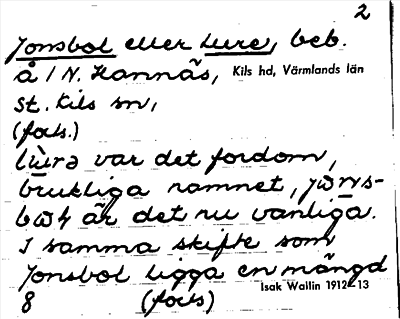 2
Jonsbol eller Lure, beb.
å 1 N. Hannäs, Kils hd, Värmlands län
St. Kils sn,
(forts.)
lùrə var det fordom
brukliga namnet,
är det nu vanliga.
I samma skifte som
Jonsbol ligga en mängd
Isak Wallin 1912–13
8 (forts)